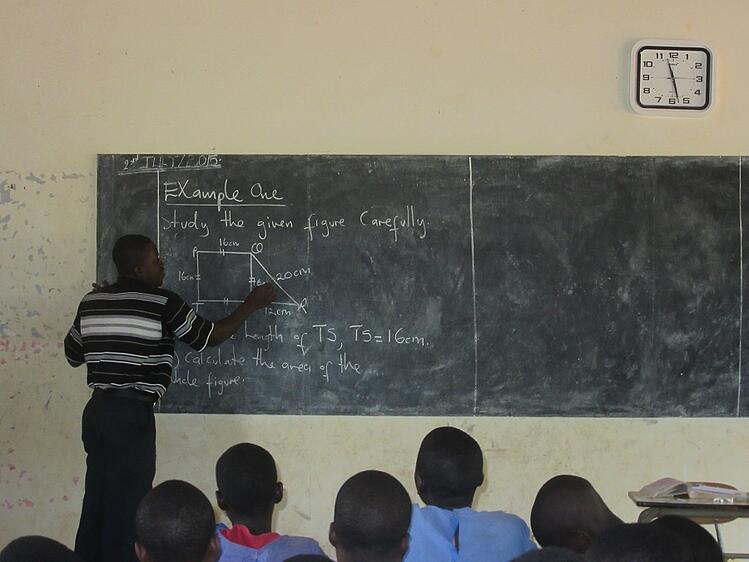 2nd JULY/2015.
Example One
Study the given figure Carefully.
16cm
P Q
16cm 20cm
T R
12cm
Length of TS, TS=16cm.
Calculate the area of the
figure.
11 12 1
10 2
9 3
8 4
7 6 5